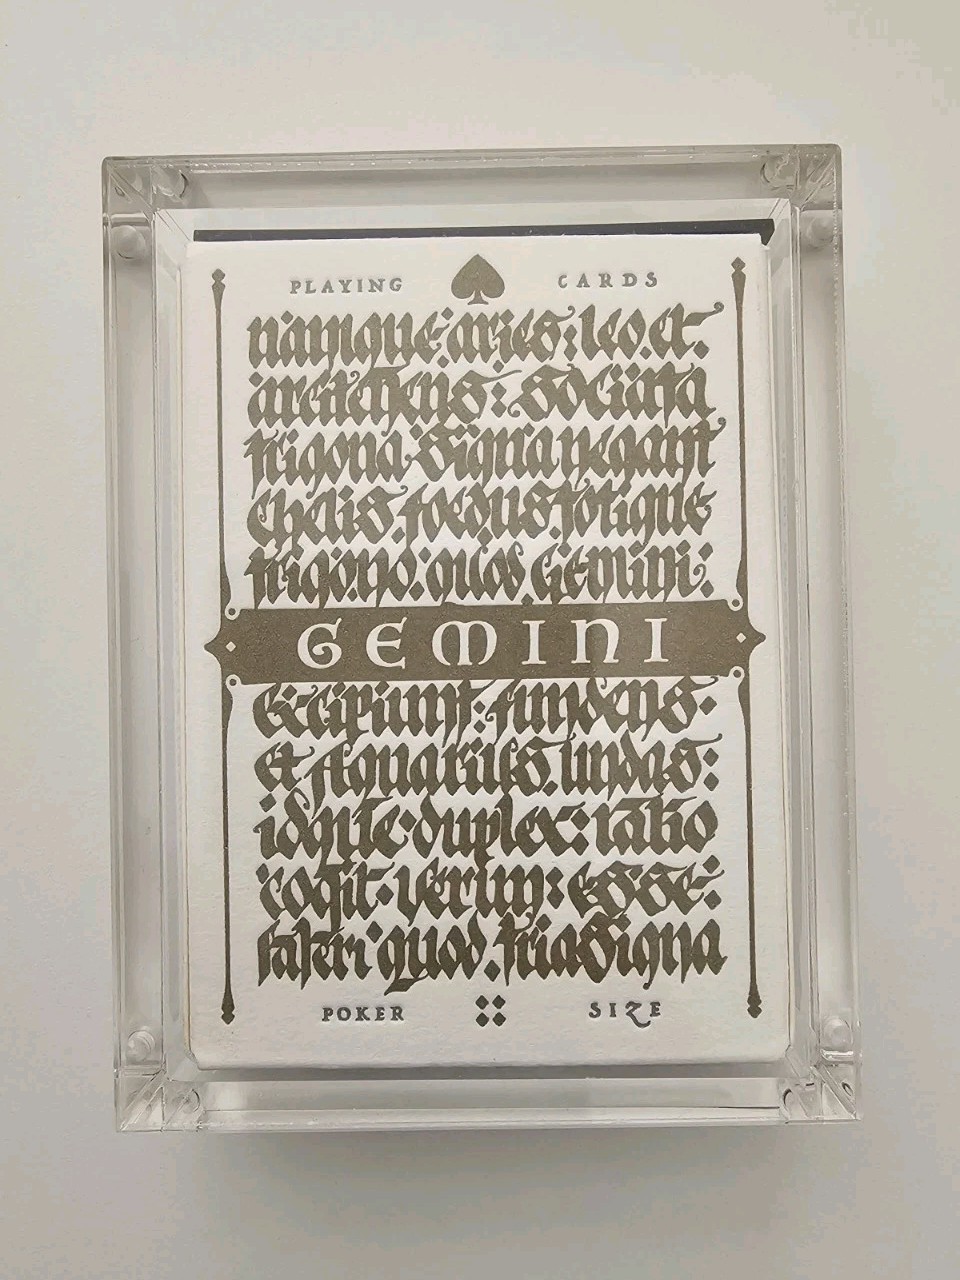 PLAYING CARDS
namque: aries: leo. et.
arcitenens: sociata
trigona signa negant
chelis. foedus. totique
trigono. quod Gemini:
GEMINI
excipiunt: fundens:
et Aquarius. undas:
idque duplex: ratio
cogit: verum: esse:
fateri quod. tria Signa
POKER SIZE